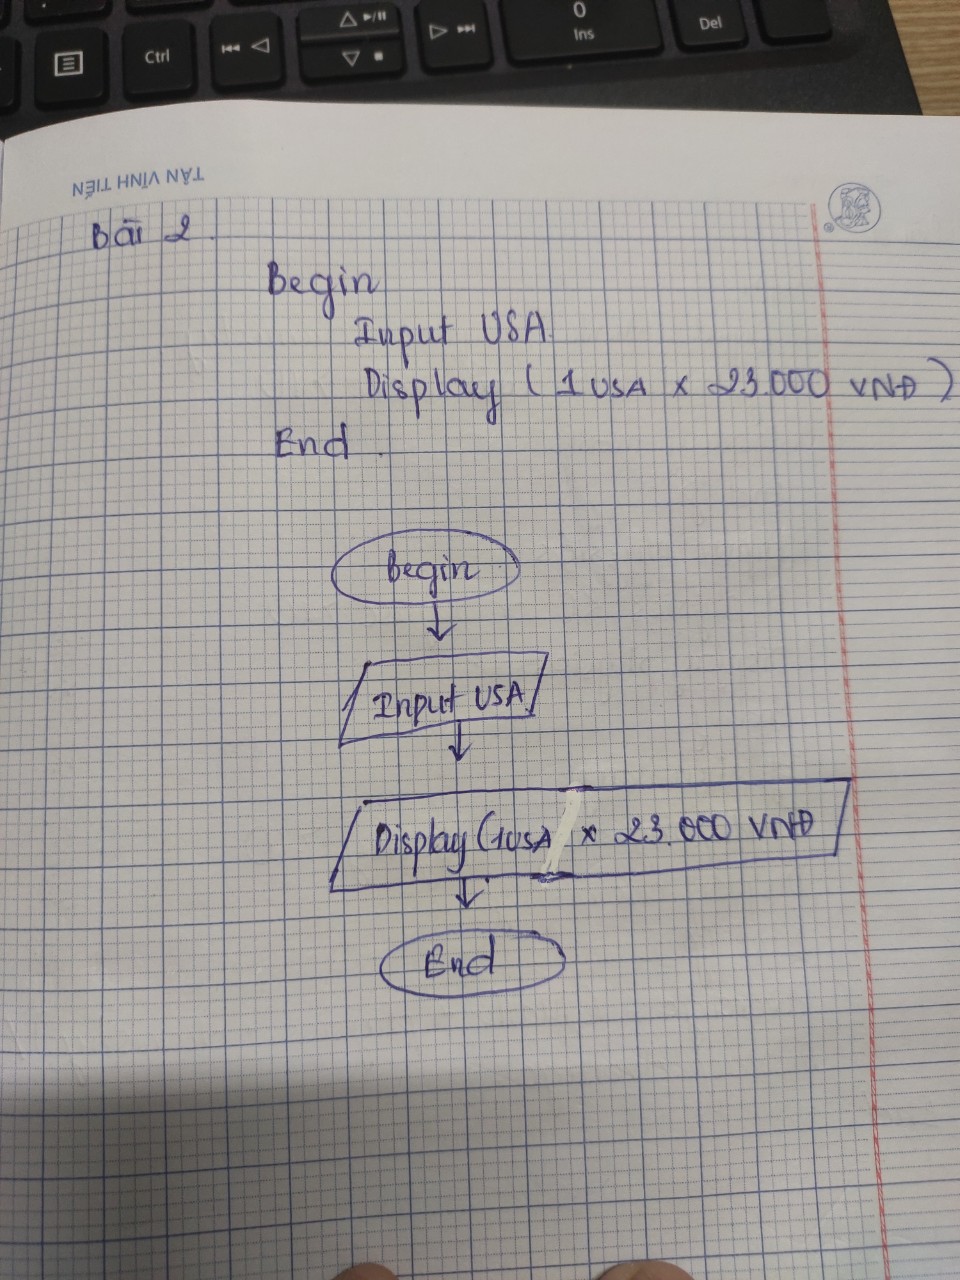 0
Ins
Del
Ctrl
TÂN VĨNH TIẾN
Bài 2.
Begin
Input USA.
Display (1 USA x 23.000 VNĐ)
End.
Begin
Input USA
Display (1USA x 23.000 VNĐ
End